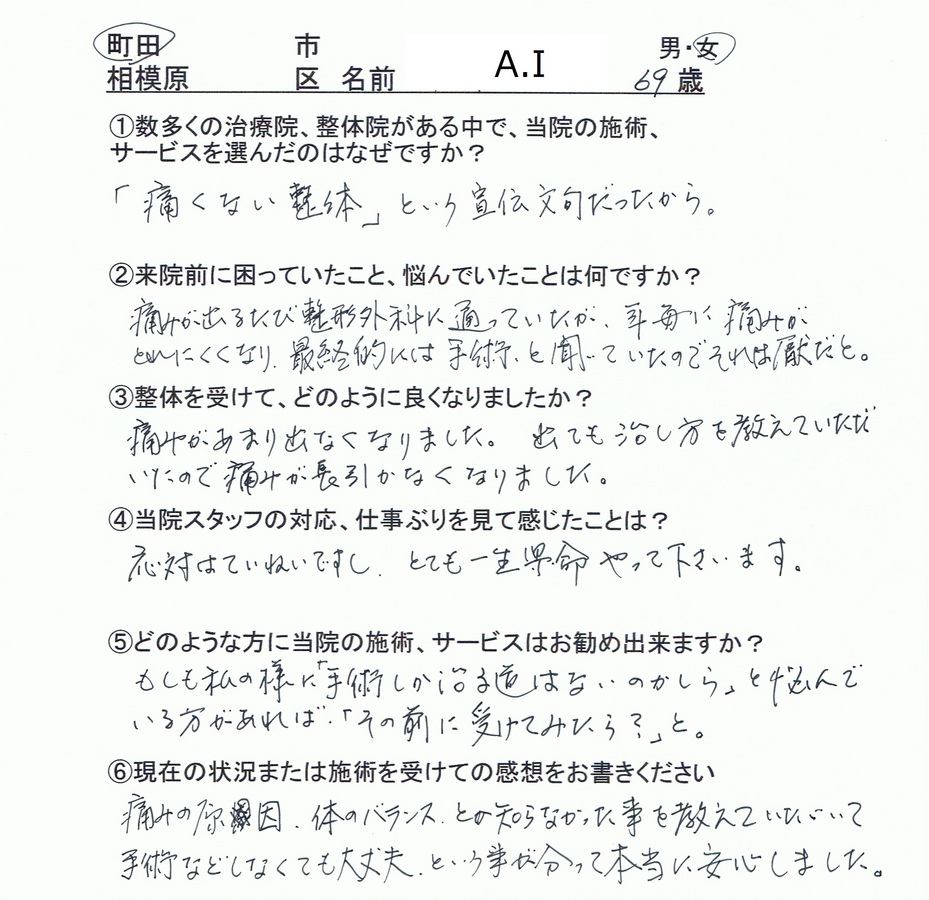 町田 市 男・女
相模原 区 名前 A.I 69歳
①数多くの治療院、整体院がある中で、当院の施術、
サービスを選んだのはなぜですか？
「痛くない整体」という宣伝文句だったから。
②来院前に困っていたこと、悩んでいたことは何ですか？
痛みが出るたび整形外科に通っていたが、年毎に痛みが
とれにくくなり、最終的には手術、と聞いていたのでそれは厭だと。
③整体を受けて、どのように良くなりましたか？
痛みがあまり出なくなりました。 出ても治し方を教えていただ
いたので痛みが長引かなくなりました。
④当院スタッフの対応、仕事ぶりを見て感じたことは？
応対はていねいですし、とても一生県命やって下さいます。
⑤どのような方に当院の施術、サービスはお勧め出来ますか？
もしも私の様に「手術しか治る道はないのかしら」と悩んで
いる方があれば、「その前に受けてみたら？」と。
⑥現在の状況または施術を受けての感想をお書きください
痛みの原因、体のバランス、とか知らなかった事を教えていただいて
手術などしなくても大丈夫、という事が分って本当に安心しました。